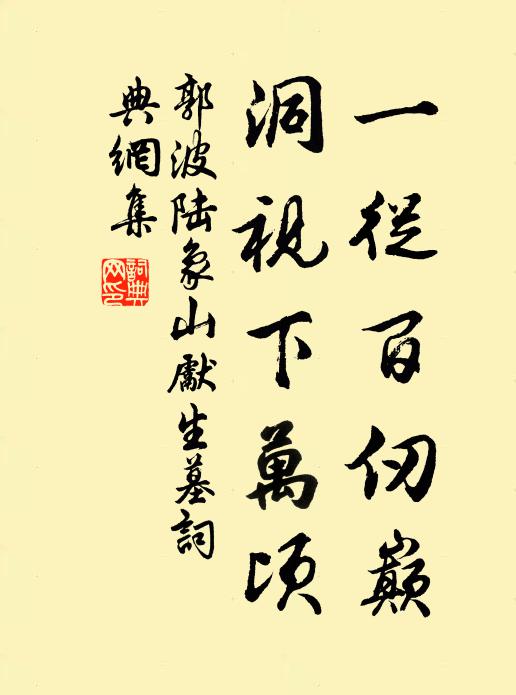 一從百仞巔
洞視下萬頃
郭波陆象山獻生墓詞
典網集
詞典网印